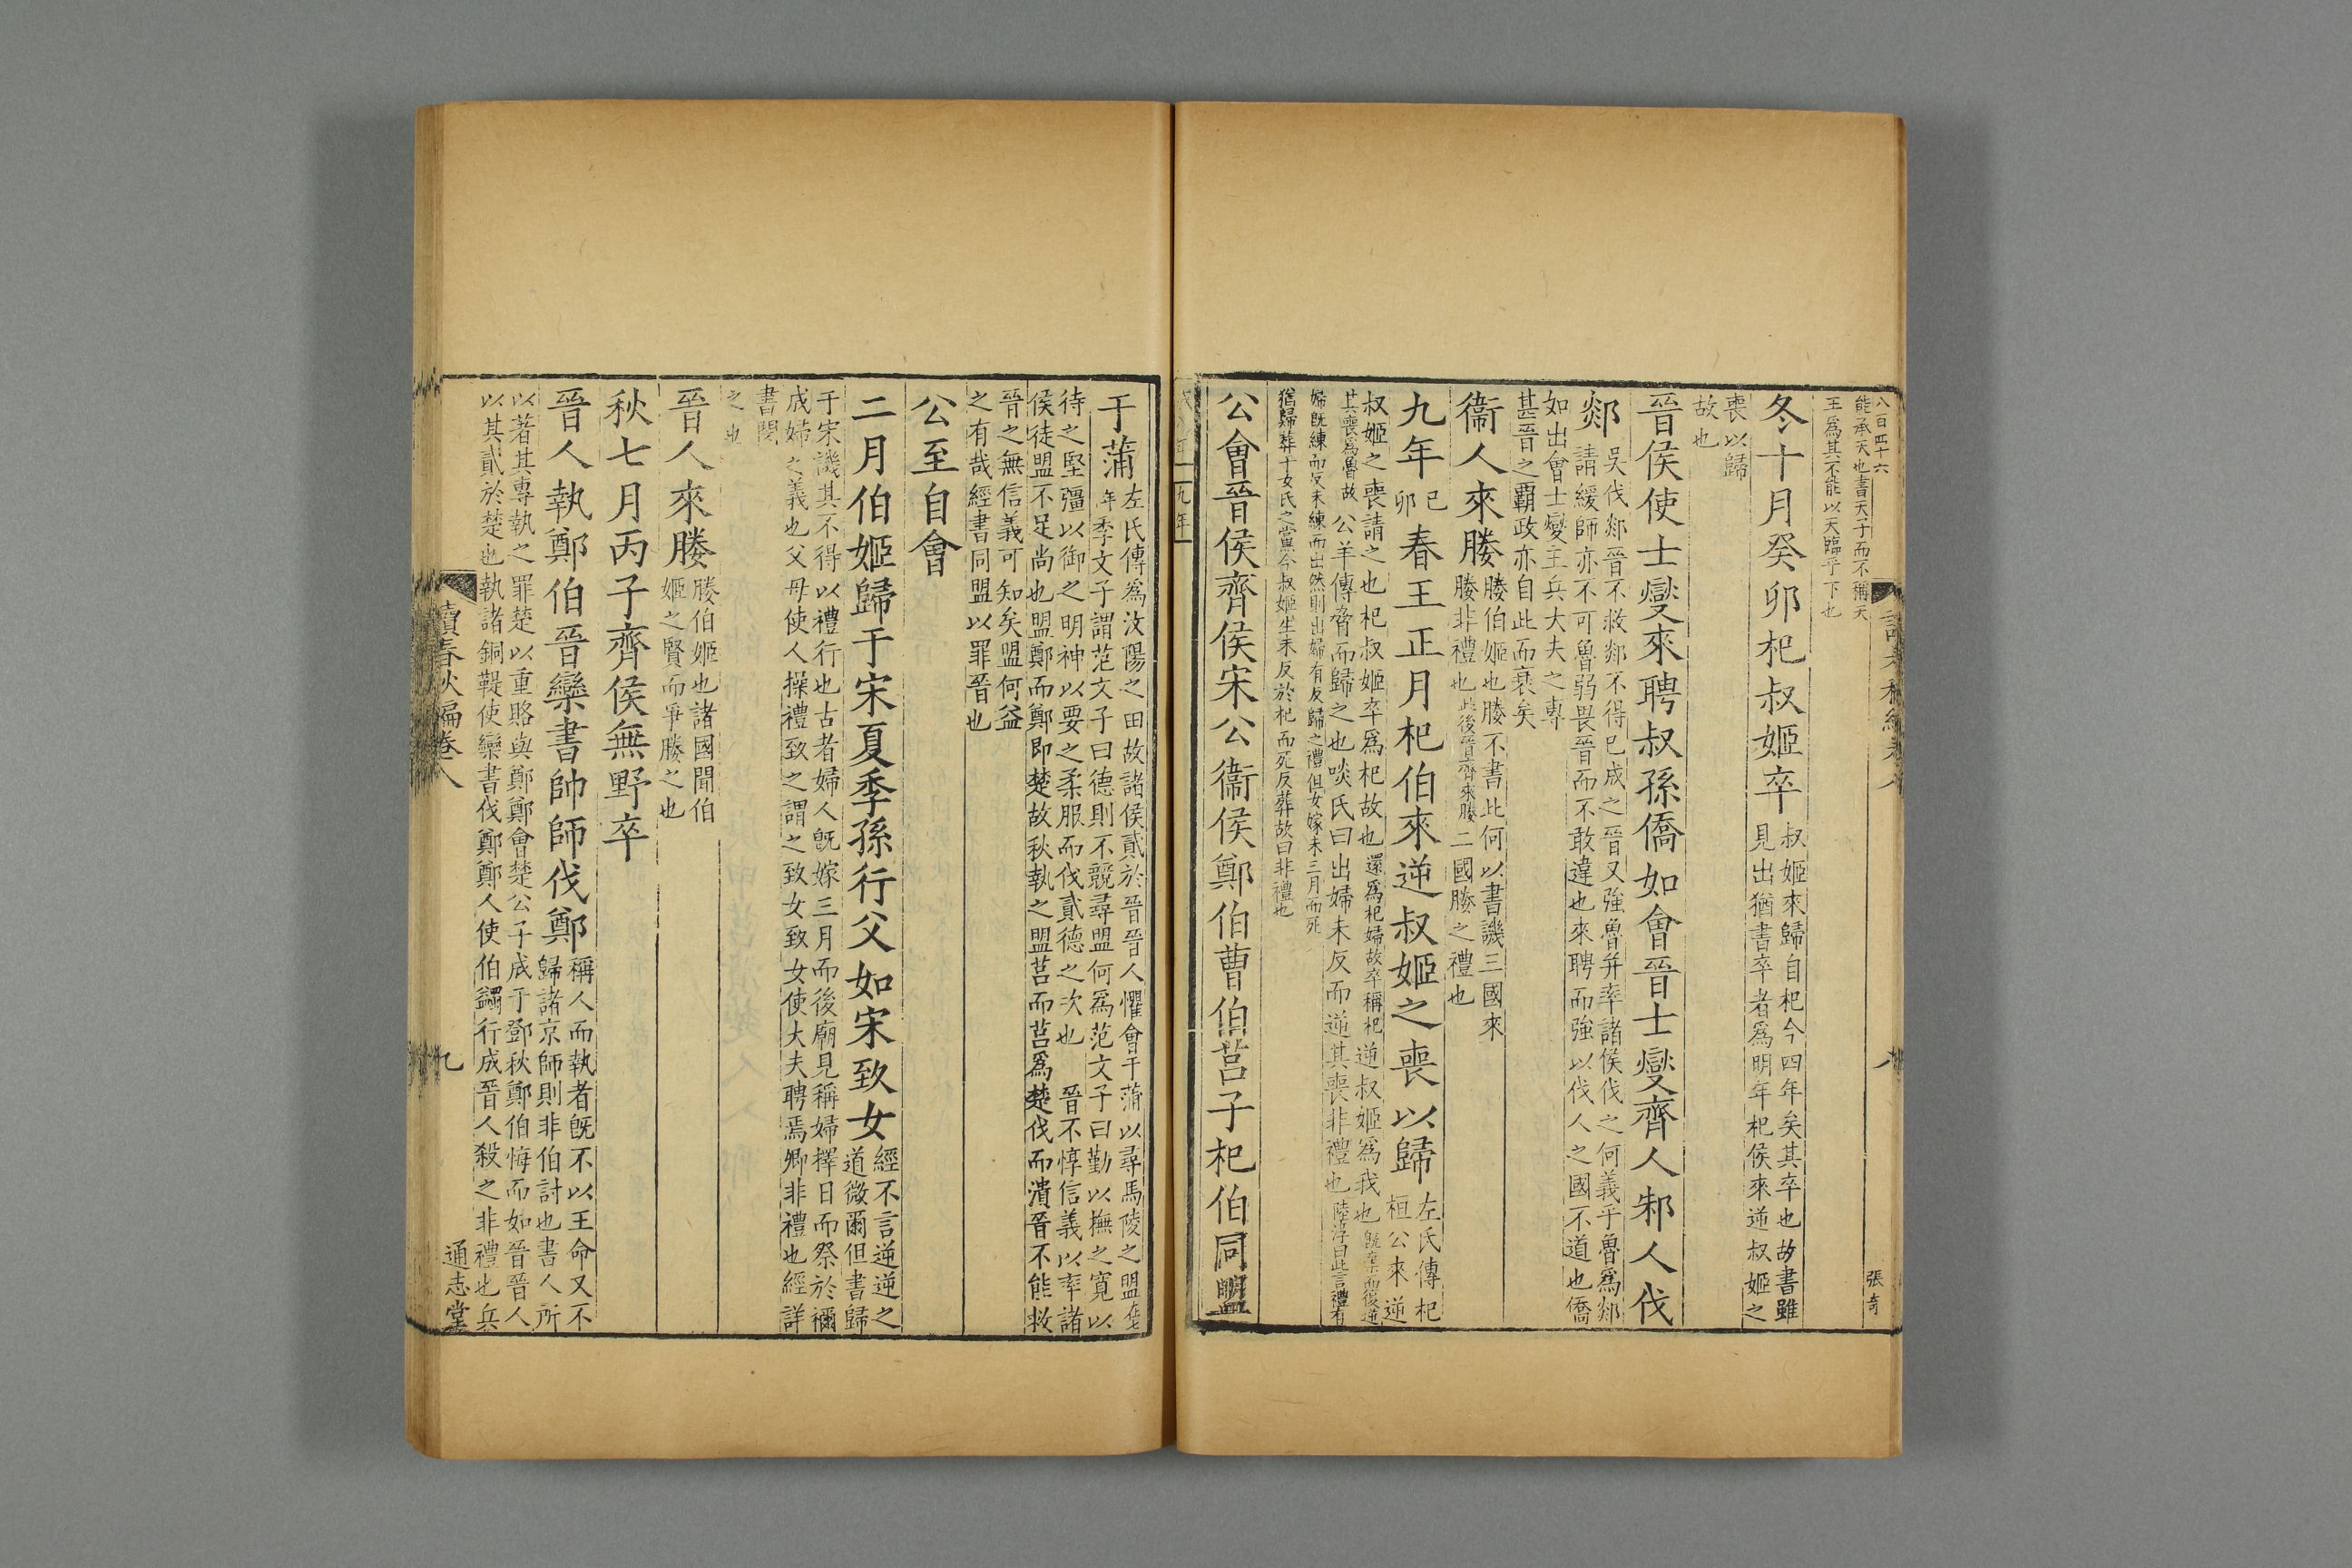 八百四十六
能承天也書天子而不稱天
王爲其不能以天臨乎下也
冬十月癸卯杞叔姬卒
叔姬來歸自杞今四年矣其卒也故書雖
見出猶書卒者爲明年杞侯來逆叔姬之
喪以歸
故也
晉侯使士燮來聘叔孫僑如會晉士燮齊人邾人伐
郯
吳伐郯晉不救郯不得已成之晉又強魯并率諸侯伐之何義乎魯爲郯
請緩師亦不可魯弱畏晉而不敢違也來聘而強以伐人之國不道也僑
如出會士燮主兵大夫之專
甚晉之覇政亦自此而衰矣
衞人來媵
媵伯姬也媵不書此何以書譏三國來
媵非禮也此後晉齊來媵二國媵之禮也
九年
己
卯
春王正月杞伯來逆叔姬之喪以歸
左氏傳杞
桓公來逆
叔姬之喪請之也杞叔姬卒爲杞故也還爲杞婦故卒稱杞逆叔姬爲我也既棄而復逆
其喪爲魯故公羊傳脅而歸之也啖氏曰出婦未反而逆其喪非禮也陸淳曰此言禮有
婦既練而反未練而出然則出婦有反歸之禮但女嫁未三月而死
猶歸葬于女氏之黨今叔姬生未反於杞而死反葬故曰非禮也
公會晉侯齊侯宋公衞侯鄭伯曹伯莒子杞伯同盟
張奇
九年
于蒲
左氏傳爲汶陽之田故諸侯貳於晉晉人懼會于蒲以尋馬陵之盟
年季文子謂范文子曰德則不競尋盟何爲范文子曰勤以撫之寬以
待之堅彊以御之明神以要之柔服而伐貳德之次也 晉不惇信義以率諸
侯徒盟不足尚也盟鄭而鄭即楚故秋執之盟莒而莒爲楚伐而潰晉不能救
晉之無信義可知矣盟何益
之有哉經書同盟以罪晉也
公至自會
二月伯姬歸于宋夏季孫行父如宋致女
經不言逆逆之
道微爾但書歸
于宋譏其不得以禮行也古者婦人既嫁三月而後廟見稱婦擇日而祭於禰
成婦之義也父母使人操禮致之謂之致女致女使大夫聘焉卿非禮也經詳
書閔
之也
晉人來媵
媵伯姬也諸國聞伯
姬之賢而爭媵之也
秋七月丙子齊侯無野卒
晉人執鄭伯晉欒書帥師伐鄭
稱人而執者既不以王命又不
歸諸京師則非伯討也書人所
以著其專執之罪楚以重賂與鄭鄭會楚公子成于鄧秋鄭伯悔而如晉晉人
以其貳於楚也執諸銅鞮使欒書伐鄭鄭人使伯蠲行成晉人殺之非禮也兵
讀春秋編卷八
九
通志堂